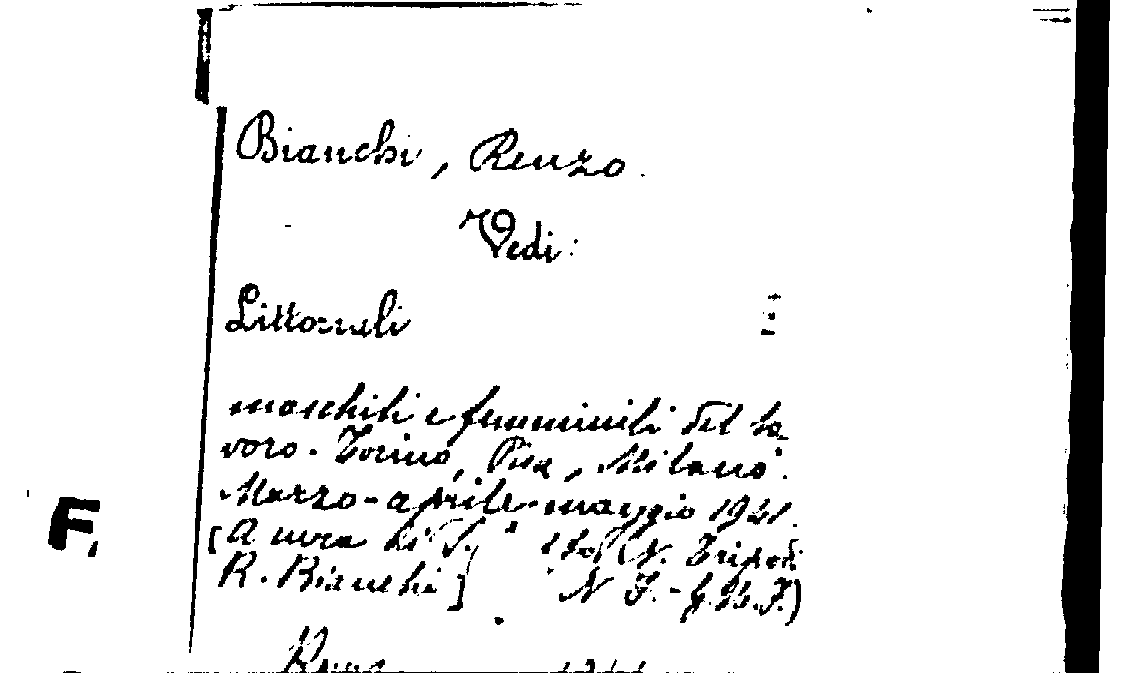 Bianchi, Renzo.
Vedi:
Littoriali
maschili e femminili del la
voro. Torino, Pisa, Milano.
Marzo-aprile-maggio 1941.
[A cura di (N. Tripodi
R. Bianchi] N J.-G.B.J.)
F.
Roma